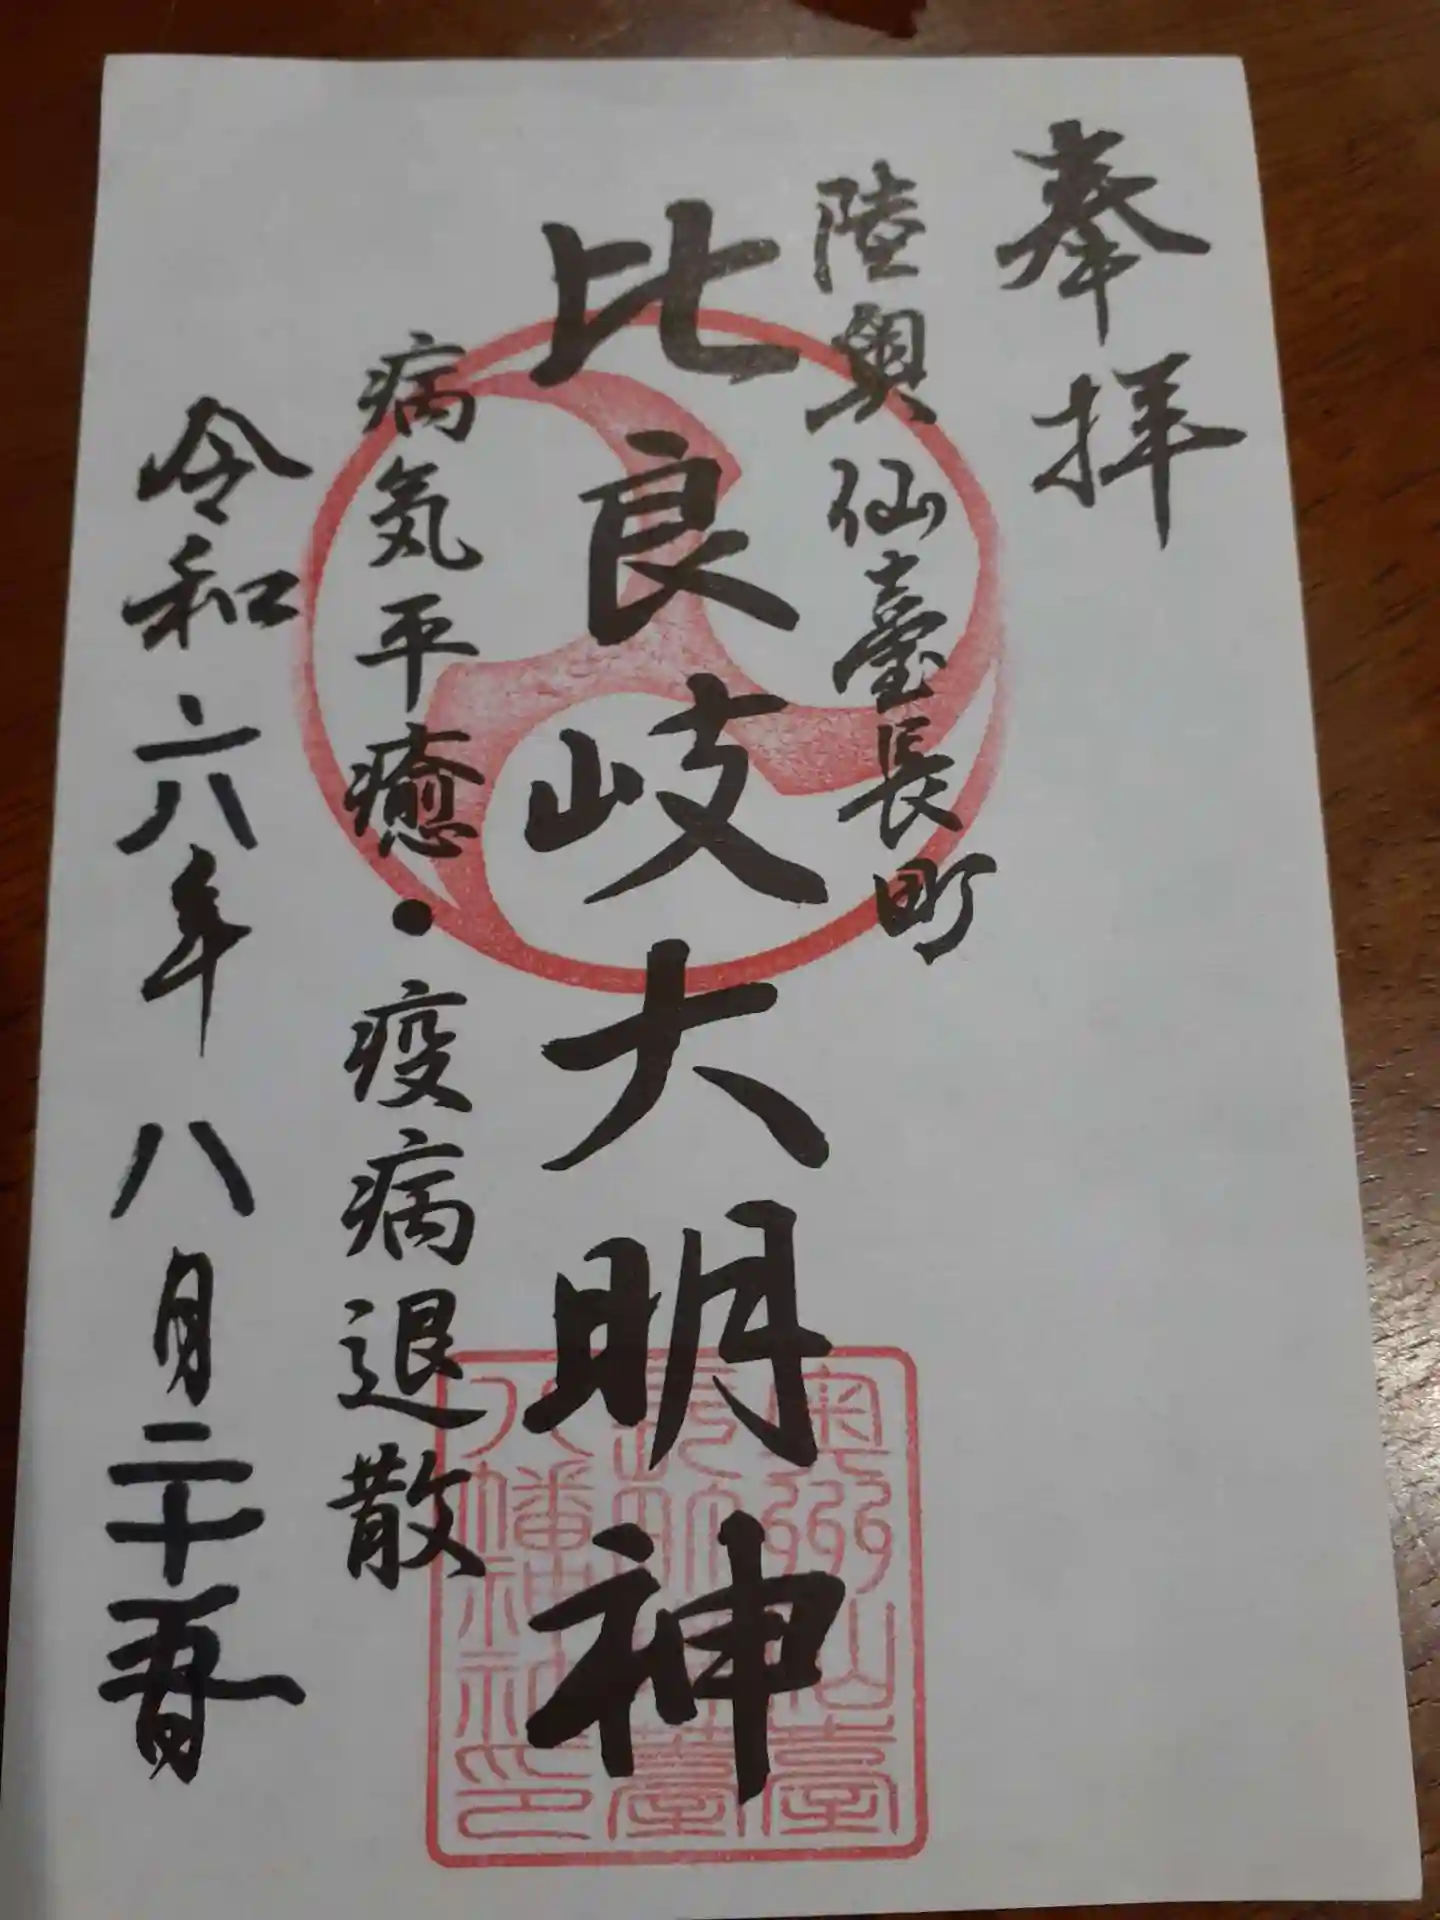 奉拝
陸奥仙臺長町
比良岐大明神
病気平癒・疫病退散
令和六年八月二十五日
奥州仙臺
八幡神社印